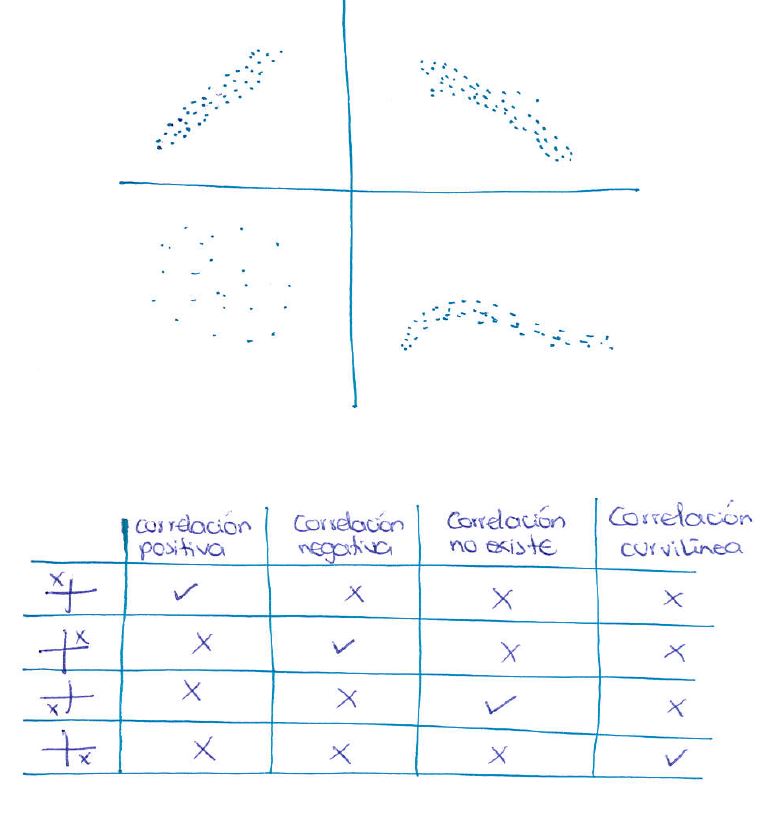 correlación positiva
Correlación negativa
Correlación no existe
Correlación curvilínea
x ✓ x x x
x x ✓ x x
x x x ✓ x
x x x x ✓